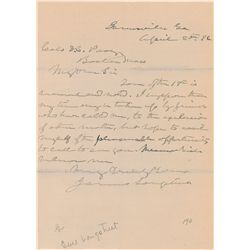 Gainesville Ga
April 25th 86
Boston Mass
My Dear Sir
Your of the 18th is
received and noted. I suppose that
my time may be taken up by friends
who have called me, to the exclusion
of other matter, but hope to avail
myself of the pleasurable opportunity
to call to see you.
believe me
Very Truly Yours
James Longstreet
Genl Longstreet